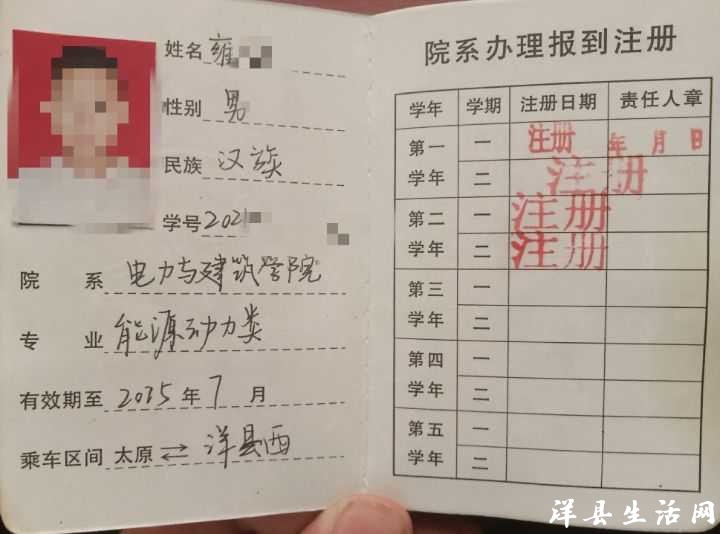 姓名 雍
性别 男
民族 汉族
学号 202
院 系 电力与建筑学院
专 业 能源动力类
有效期至 2025 年 7 月
乘车区间 太原 ⇄ 洋县西
院系办理报到注册
学年 学期 注册日期 责任人章
第一学年 一 注册 年 月 日
二 注册
第二学年 一 注册
二 注册
第三学年 一
二
第四学年 一
二
第五学年 一
二
洋县生活网